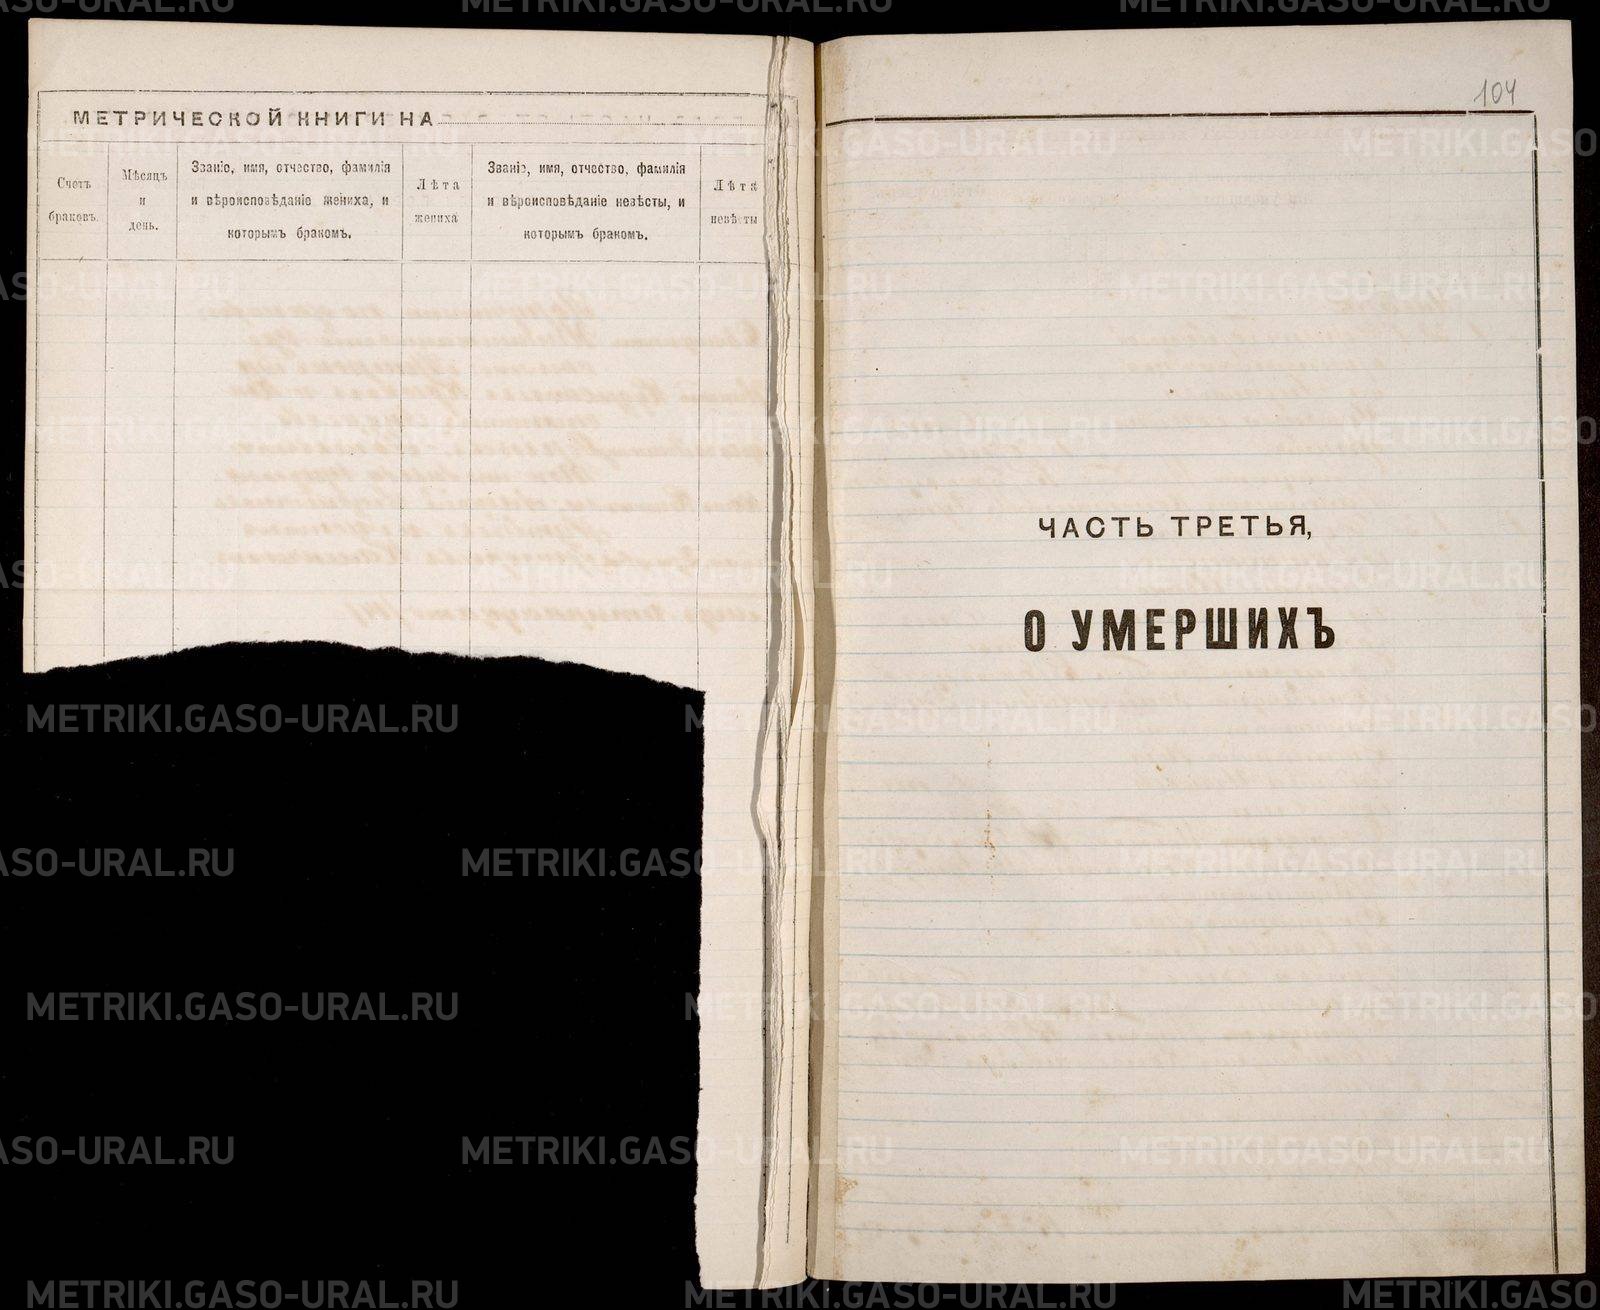 МЕТРИЧЕСКОЙ КНИГИ НА
Счетъ
браковъ.
Мѣсяцъ
и
день.
Званіе, имя, отчество, фамилія
и вѣроисповѣданіе жениха, и
которымъ бракомъ.
Лѣта
жениха
Званіе, имя, отчество, фамилія
и вѣроисповѣданіе невѣсты, и
которымъ бракомъ.
Лѣта
невѣсты
104
ЧАСТЬ ТРЕТЬЯ,
О УМЕРШИХЪ
METRIKI.GASO-URAL.RU